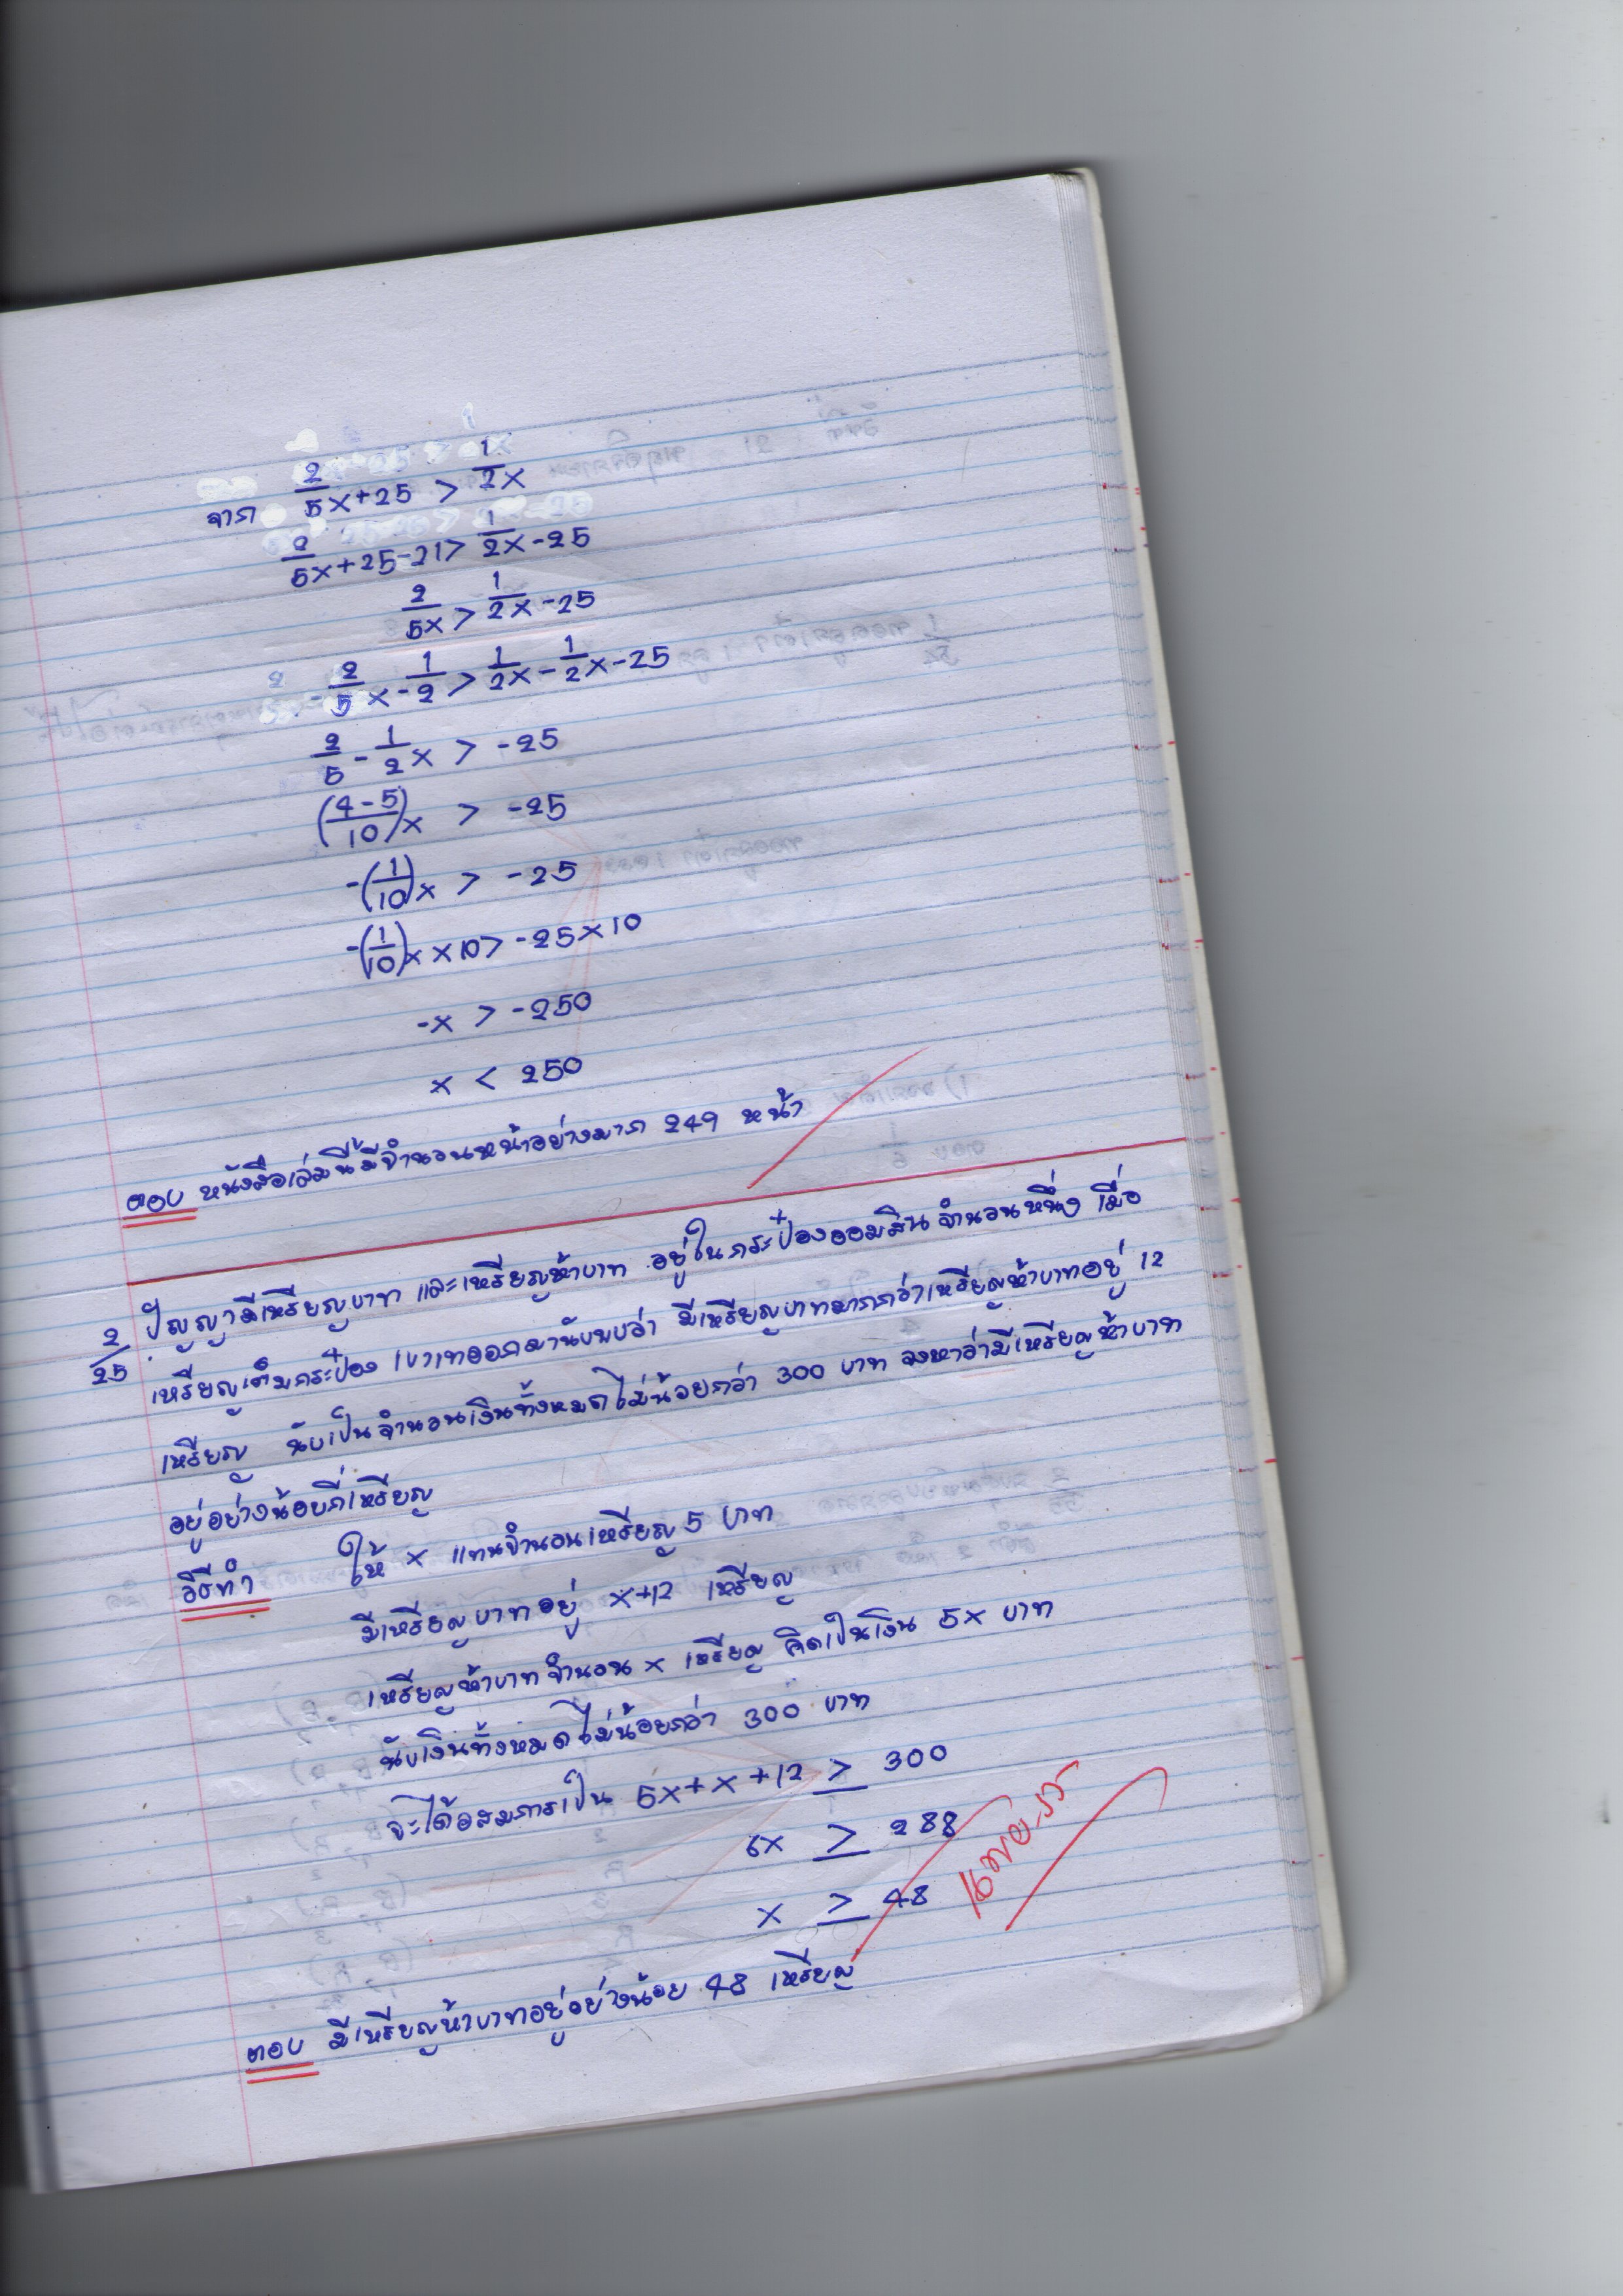 จาก 2/5x+25 > 1/2x
2/5x+25-21> 1/2x-25
2/5x > 1/2x-25
2/5x-1/2 > 1/2x-1/2x-25
2/5-1/2x > -25
(4-5/10)x > -25
-(1/10)x > -25
-(1/10)x×10> -25×10
-x > -250
x < 250
ตอบ หนังสือเล่มนี้มีจำนวนหน้าอย่างมาก 249 หน้า
2/25 ปัญญามีเหรียญบาท และเหรียญห้าบาท อยู่ในกระป๋องออมสินจำนวนหนึ่ง เมื่อ
เหรียญเต็มกระป๋อง เขาเทออกมานับพบว่า มีเหรียญบาทมากกว่าเหรียญห้าบาทอยู่ 12
เหรียญ นับเป็นจำนวนเงินทั้งหมดไม่น้อยกว่า 300 บาท จงหาว่ามีเหรียญห้าบาท
อยู่อย่างน้อยกี่เหรียญ
วิธีทำ ให้ x แทนจำนวนเหรียญ 5 บาท
มีเหรียญบาทอยู่ x+12 เหรียญ
เหรียญห้าบาทจำนวน x เหรียญ คิดเป็นเงิน 5x บาท
นับเงินทั้งหมดไม่น้อยกว่า 300 บาท
จะได้อสมการเป็น 5x+x+12 ≥ 300
6x ≥ 288
x ≥ 48
ตอบ มีเหรียญห้าบาทอยู่อย่างน้อย 48 เหรียญ